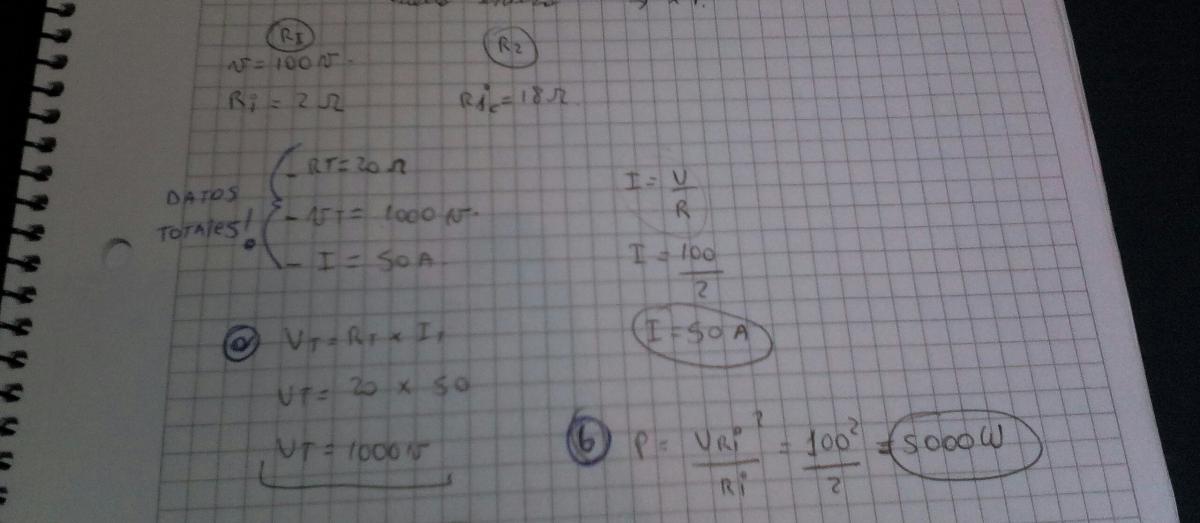 R1
V = 100 V.
Ri = 2 Ω
R2
Ric = 18 Ω
DATOS
TOTALES!
- RT = 20 Ω
- VT = 1000 V.
- I = 50 A
I = V
R
I = 100
2
I = 50 A
a VT = RT x I
VT = 20 x 50
VT = 1000 V
b P = VRi² = 100² = 5000W
Ri 2